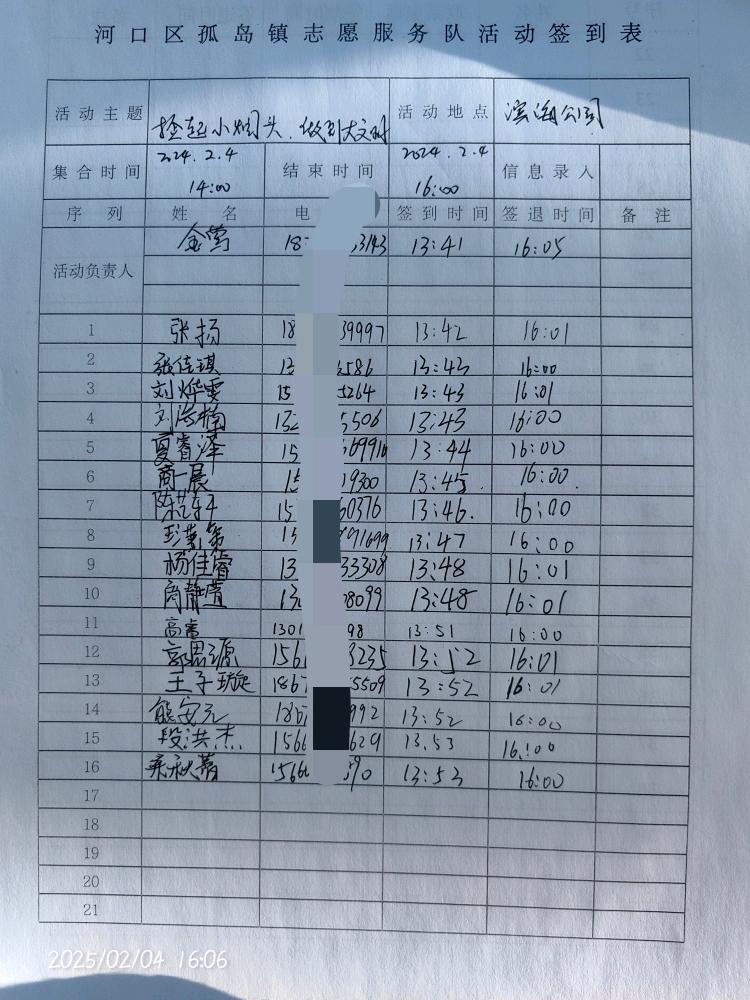 河口区孤岛镇志愿服务队活动签到表
活动主题 捡起小烟头、做到大文明 活动地点 滨海公司
集合时间 2024.2.4 14:00 结束时间 2024.2.4 16:00 信息录入
序列 姓名 电 签到时间 签退时间 备注
活动负责人 金莺 18 3143 13:41 16:05
1 张扬 18 39997 13:42 16:01
2 张佳琪 13 586 13:43 16:00
3 刘烨雯 15 264 13:43 16:01
4 刘浩楠 132 5506 13:43 16:00
5 夏睿泽 15 69916 13:44 16:00
6 商一晨 15 19300 13:45. 16:00.
7 陈 15 60376 13:46. 16:00
8 15 91699 13:47 16:00
9 杨佳睿 13 33308 13:48 16:01
10 13 8099 13:48 16:01
11 高 1301 98 13:51 16:00
12 郭思源 156 3235 13:52 16:01
13 王子璇 1867 5509 13:52 16:01
14 熊安元 18 992 13:52 16:00
15 段洪杰 1566 629 13.53 16:00
16 1566 90 13:53 16:00
17
18
19
20
21
2025/02/04 16:06